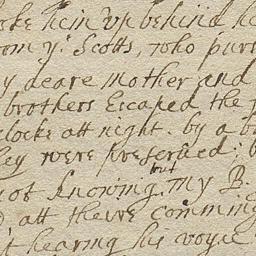 hein up behind he
Scotts, who purs
y deare mother and
brothers Escaped the
clocke att night. by a b
hey were preserued;
not knowing but my B.
att theire comming
t hearing his voyce